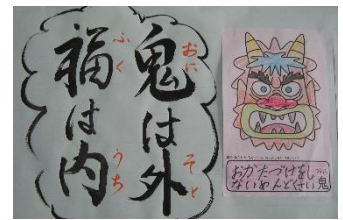 鬼は外
おに そと
福は内
ふく うち
おかたづけをし
ないめんどくさい鬼